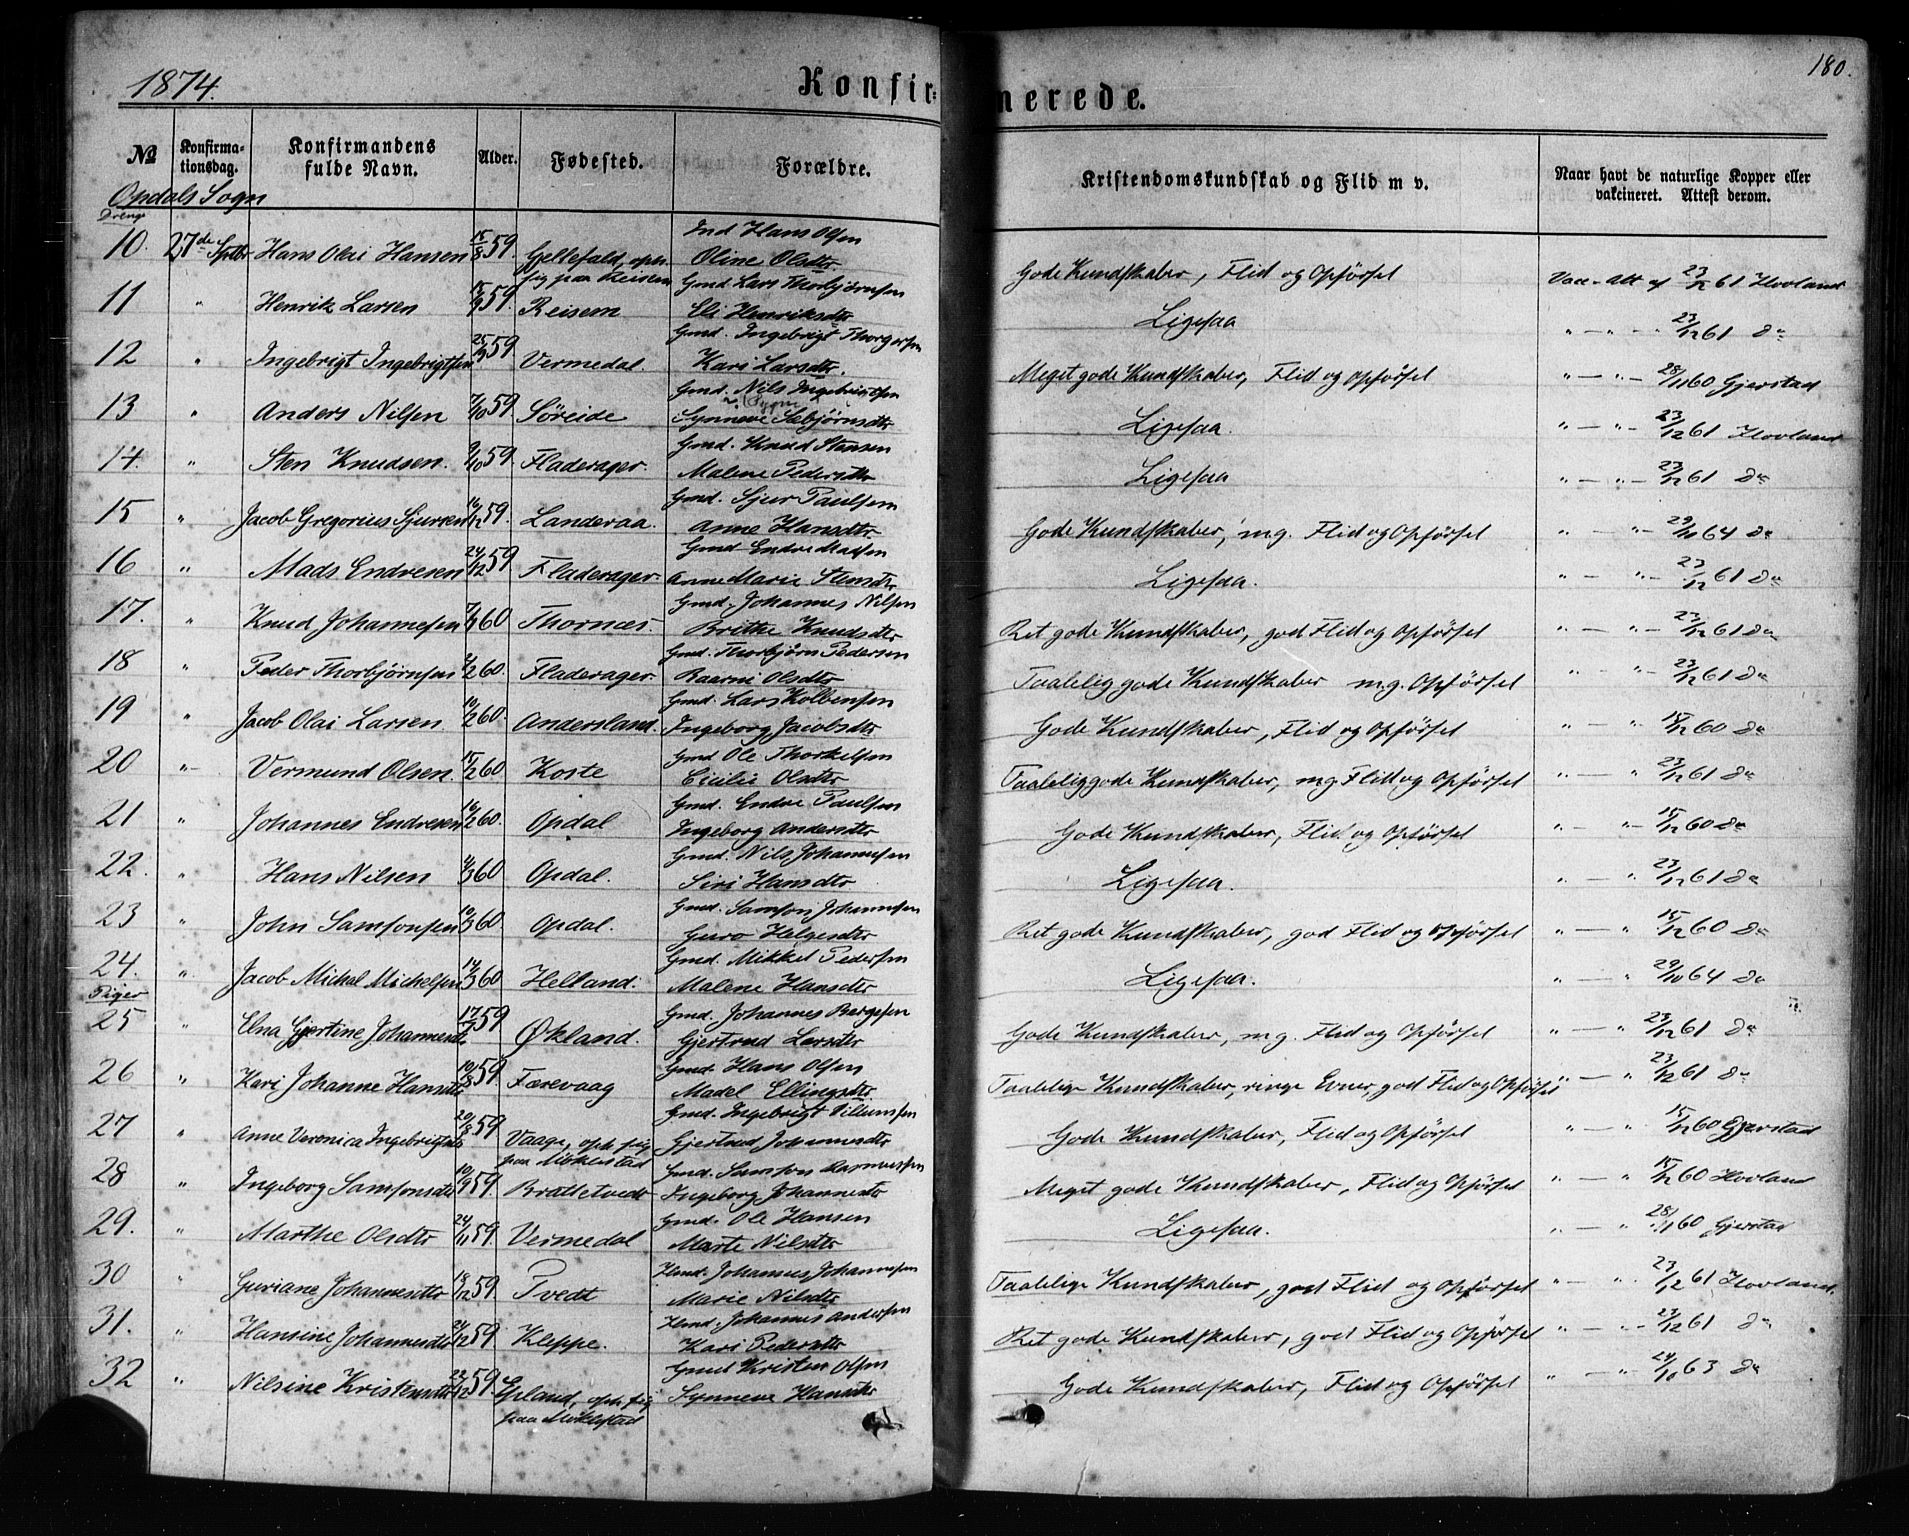 1874.
Konfir=
merede.
180.
No
Konfirma-
tionsdag.
Konfirmandens
fulde Navn.
Alder.
Fødested.
Forældre.
Kristendomskundskab og Flid m v.
Naar havt de naturlige Kopper eller
vakcineret. Attest derom.
Opdals Sogn
Drenge
10. 27de Sptbr. Hans Olai Hansen 15/8 59 Gjellefald, oph. sig paa Reisem Ind Hans Olsen Oline Olsdtr Gode Kundskaber, Flid og Opførsel Vacc. Att af 23/12 61 Hovland
11 " Henrik Larsen 59. Reisem Gmd Lars Thorbjørnsen Eli Henriksdtr Ligesaa " — " — 23/12 61 do
12 " Ingebrigt Ingebrigtsen 25/9 59 Vermedal. Gmd. Ingebrigt Thorgersen Kari Larsdtr. Meget gode Kundskaber, Flid og Opførsel " — " — 28/11 60 Gjerstad
13 " Anders Nilsen 7/10 59 Søreide Gmd. Nils Ingebrigtsen Synneve Sæbjørnsdtr Ligesaa. " — " — 23/12 61 Hovland
14. " Sten Knudsen. 9/10 59. Fladerager. Gmd. Knud Stensen Malene Pedersdtr Ligesaa " — " — 23/12 61 do
15 " Jacob Gregorius Sjursen 16/12 59. Landeraa. Gmd. Sjur Paulsen Anne Hansdtr Gode Kundskaber, mg. Flid og Opførsel " — " — 29/10 64 do
16 " Mads Endresen 24/12 59 Fladerager Gmd Endre Madsen Anne Marie Stensdtr Ligesaa. " — " — 23/12 61 do
17. " Knud Johannesen 60 Thornæs. Gmd. Johannes Nilsen Brithe Knudsdtr Ret gode Kundskaber, god Flid og Opførsel " — " — 23/12 61 do
18 " Peder Thorbjørnsen 2/2 60. Fladerager Gmd. Thorbjørn Pedersen Olsdtr Taalelig gode Kundskaber mg. Opførsel " — " — 23/12 61 do
19 " Jacob Olai Larsen. 10/2 60. Andersland. Gmd. Lars Kolbensen Ingeborg Jacobsdtr Gode Kundskaber, Flid og Opførsel " — " 15/12 60 do
20 " Vermund Olsen. 15/2 60 Koste Gmd Ole Thorkelsen Cicilie Olsdtr Taalelig gode Kundskaber, mg Flid og Opførsel " — " 23/12 61 do
21 " Johannes Endresen 16/2 60. Opdal Gmd. Endre Paulsen Ingeborg Andersdtr Gode Kundskaber, Flid og Opførsel " — " — 15/12 60 do
22. " Hans Nilsen 60 Opdal. Gmd. Nils Johannesen Siri Hansdtr Ligesaa. " — " 23/12 61 do
23 " John Samsonsen 10/3 60 Opdal. Gmd. Samson Johannesen Guro Helgesdtr Ret gode Kundskaber, god Flid og Opførsel " — " 15/12 60 do
24. " Jacob Michal Michelsen 14/3 60 Helland. Gmd. Mikkel Pedersen Malene Hansdtr Ligesaa. " — " 29/10 64 do
Piger
25 " Elna Gjertine Johannesdtr 59 Økland. Gmd. Johannes Børgesen Gjertrud Larsdtr Gode Kundskaber, mg. Flid og Opførsel " — " 23/12 61 do
26 " Kari Johanne Hansdtr 10/8 59. Færevaag Gmd. Hans Olsen Madel Ellingsdtr. Taalelige Kundskaber, ringe Evner, god Flid og Opførsel " — " 23/12 61 do
27 " Anne Veronica Ingebrigtsdtr 20/8 59 Vaage, oph. sig paa Møklestad Gmd. Ingebrigt Villumsen Gjertrud Johannesdtr Gode Kundskaber, Flid og Opførsel " — " 15/12 60 Gjerstad
28 " Ingeborg Samsonsdtr 10/9 59. Brattetvedt Gmd. Samson Rasmussen Ingeborg Johannesdtr Meget gode Kundskaber, Flid og Opførsel " — " 15/12 60 Hovland
29. " Marthe Olsdtr 24/11 59. Vermedal Gmd. Ole Hansen Marte Nilsdtr Ligesaa. " — " 28/11 60 Gjerstad
30 " Guriane Johannesdtr 18/12 59. Tvedt Hmd. Johannes Johannesen Marie Nilsdtr Taalelige Kundskaber, god Flid og Opførsel " — " 23/12 61 Hovland.
31. " Hansine Johannesdtr 21/12 59. Kleppe. Hmd. Johannes Andersen Kari Pedersdtr Ret gode Kundskaber, god Flid og Opførsel " — " — 23/12 61 do
32 " Nilsine Kristensdtr 22/12 59. Epland, oph. sig paa Møklestad Gmd Kristen Olsen Synneve Hansdtr Gode Kundskaber, Flid og Opførsel " " 24/10 63 do